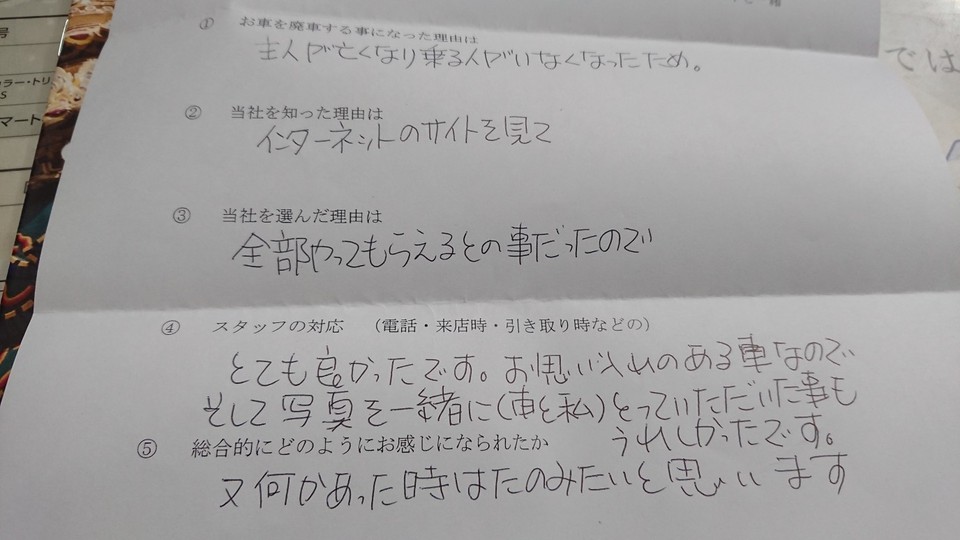 ① お車を廃車する事になった理由は
主人が亡くなり乗る人がいなくなったため。
② 当社を知った理由は
インターネットのサイトを見て
③ 当社を選んだ理由は
全部やってもらえるとの事だったので
④ スタッフの対応 （電話・来店時・引き取り時などの）
とても良かったです。お思い入れのある車なので
そして写真を一緒に(車と私)とっていただいた事も
うれしかったです。
⑤ 総合的にどのようにお感じになられたか
又何かあった時はたのみたいと思いいます
号
ラー・トリ
S
マート
では